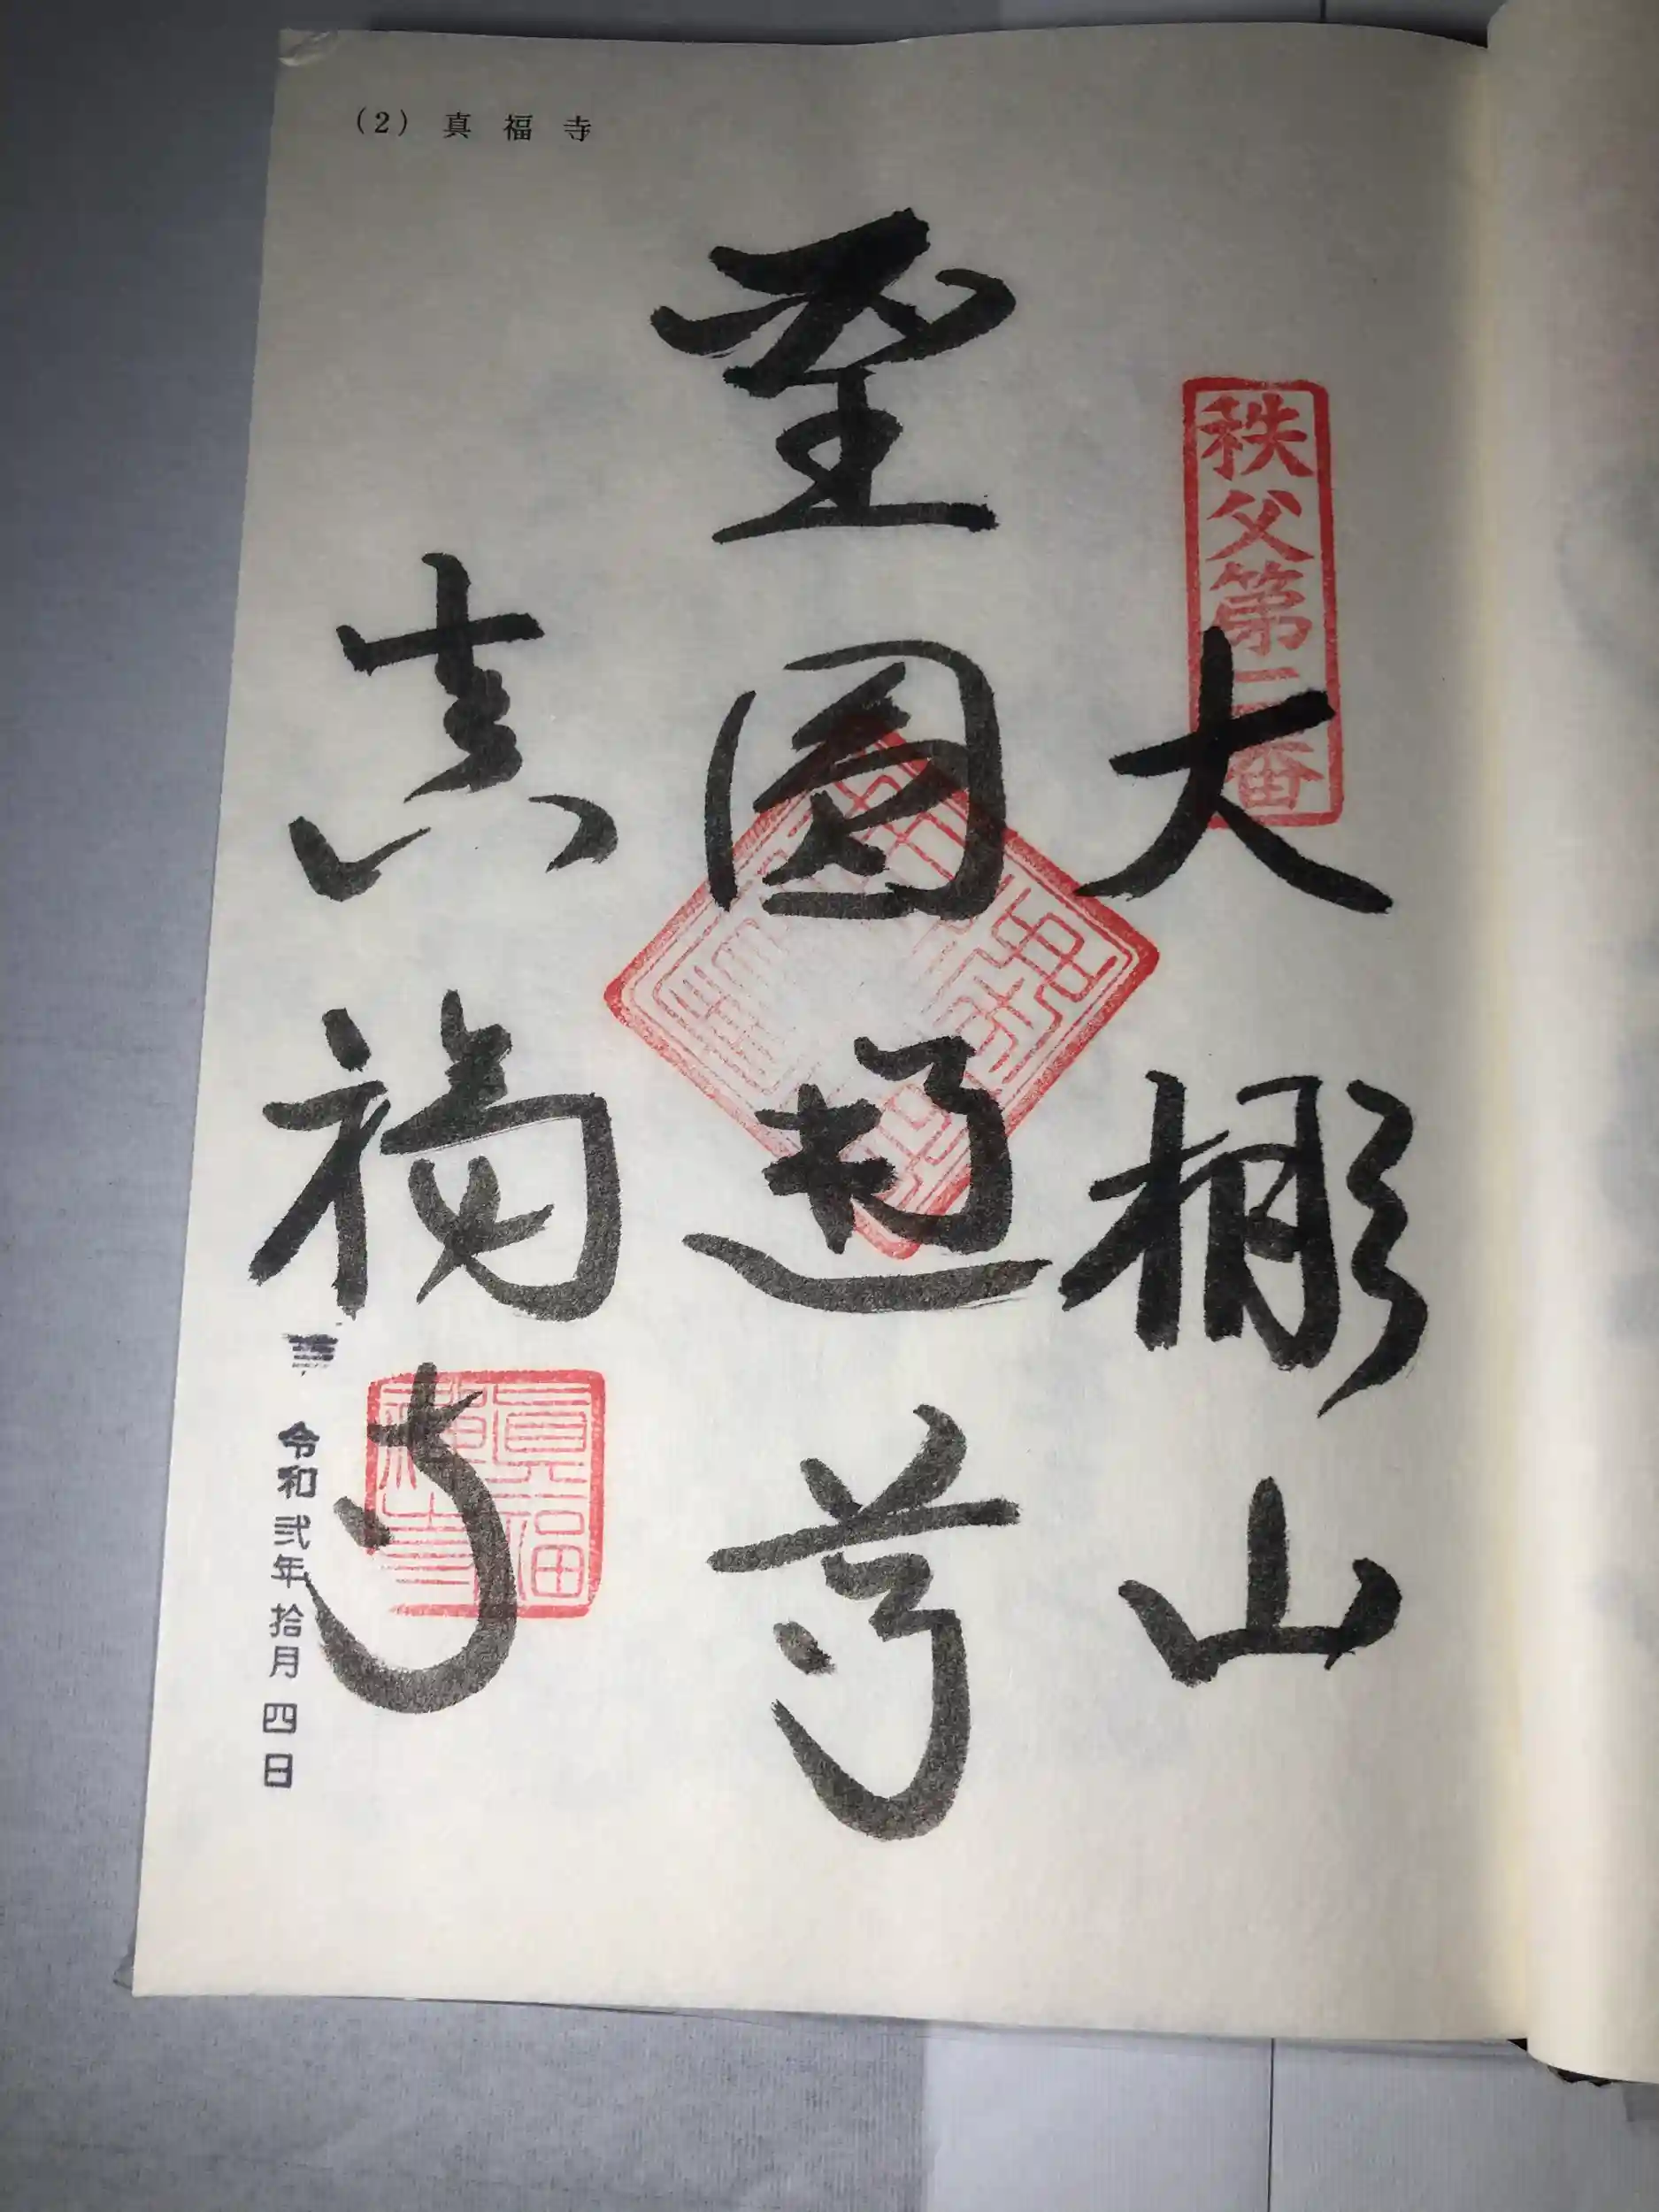 (2) 真福寺
秩父第二番
大棚山
聖圓通尊
真福寺
眞福禅寺
令和弐年拾月四日